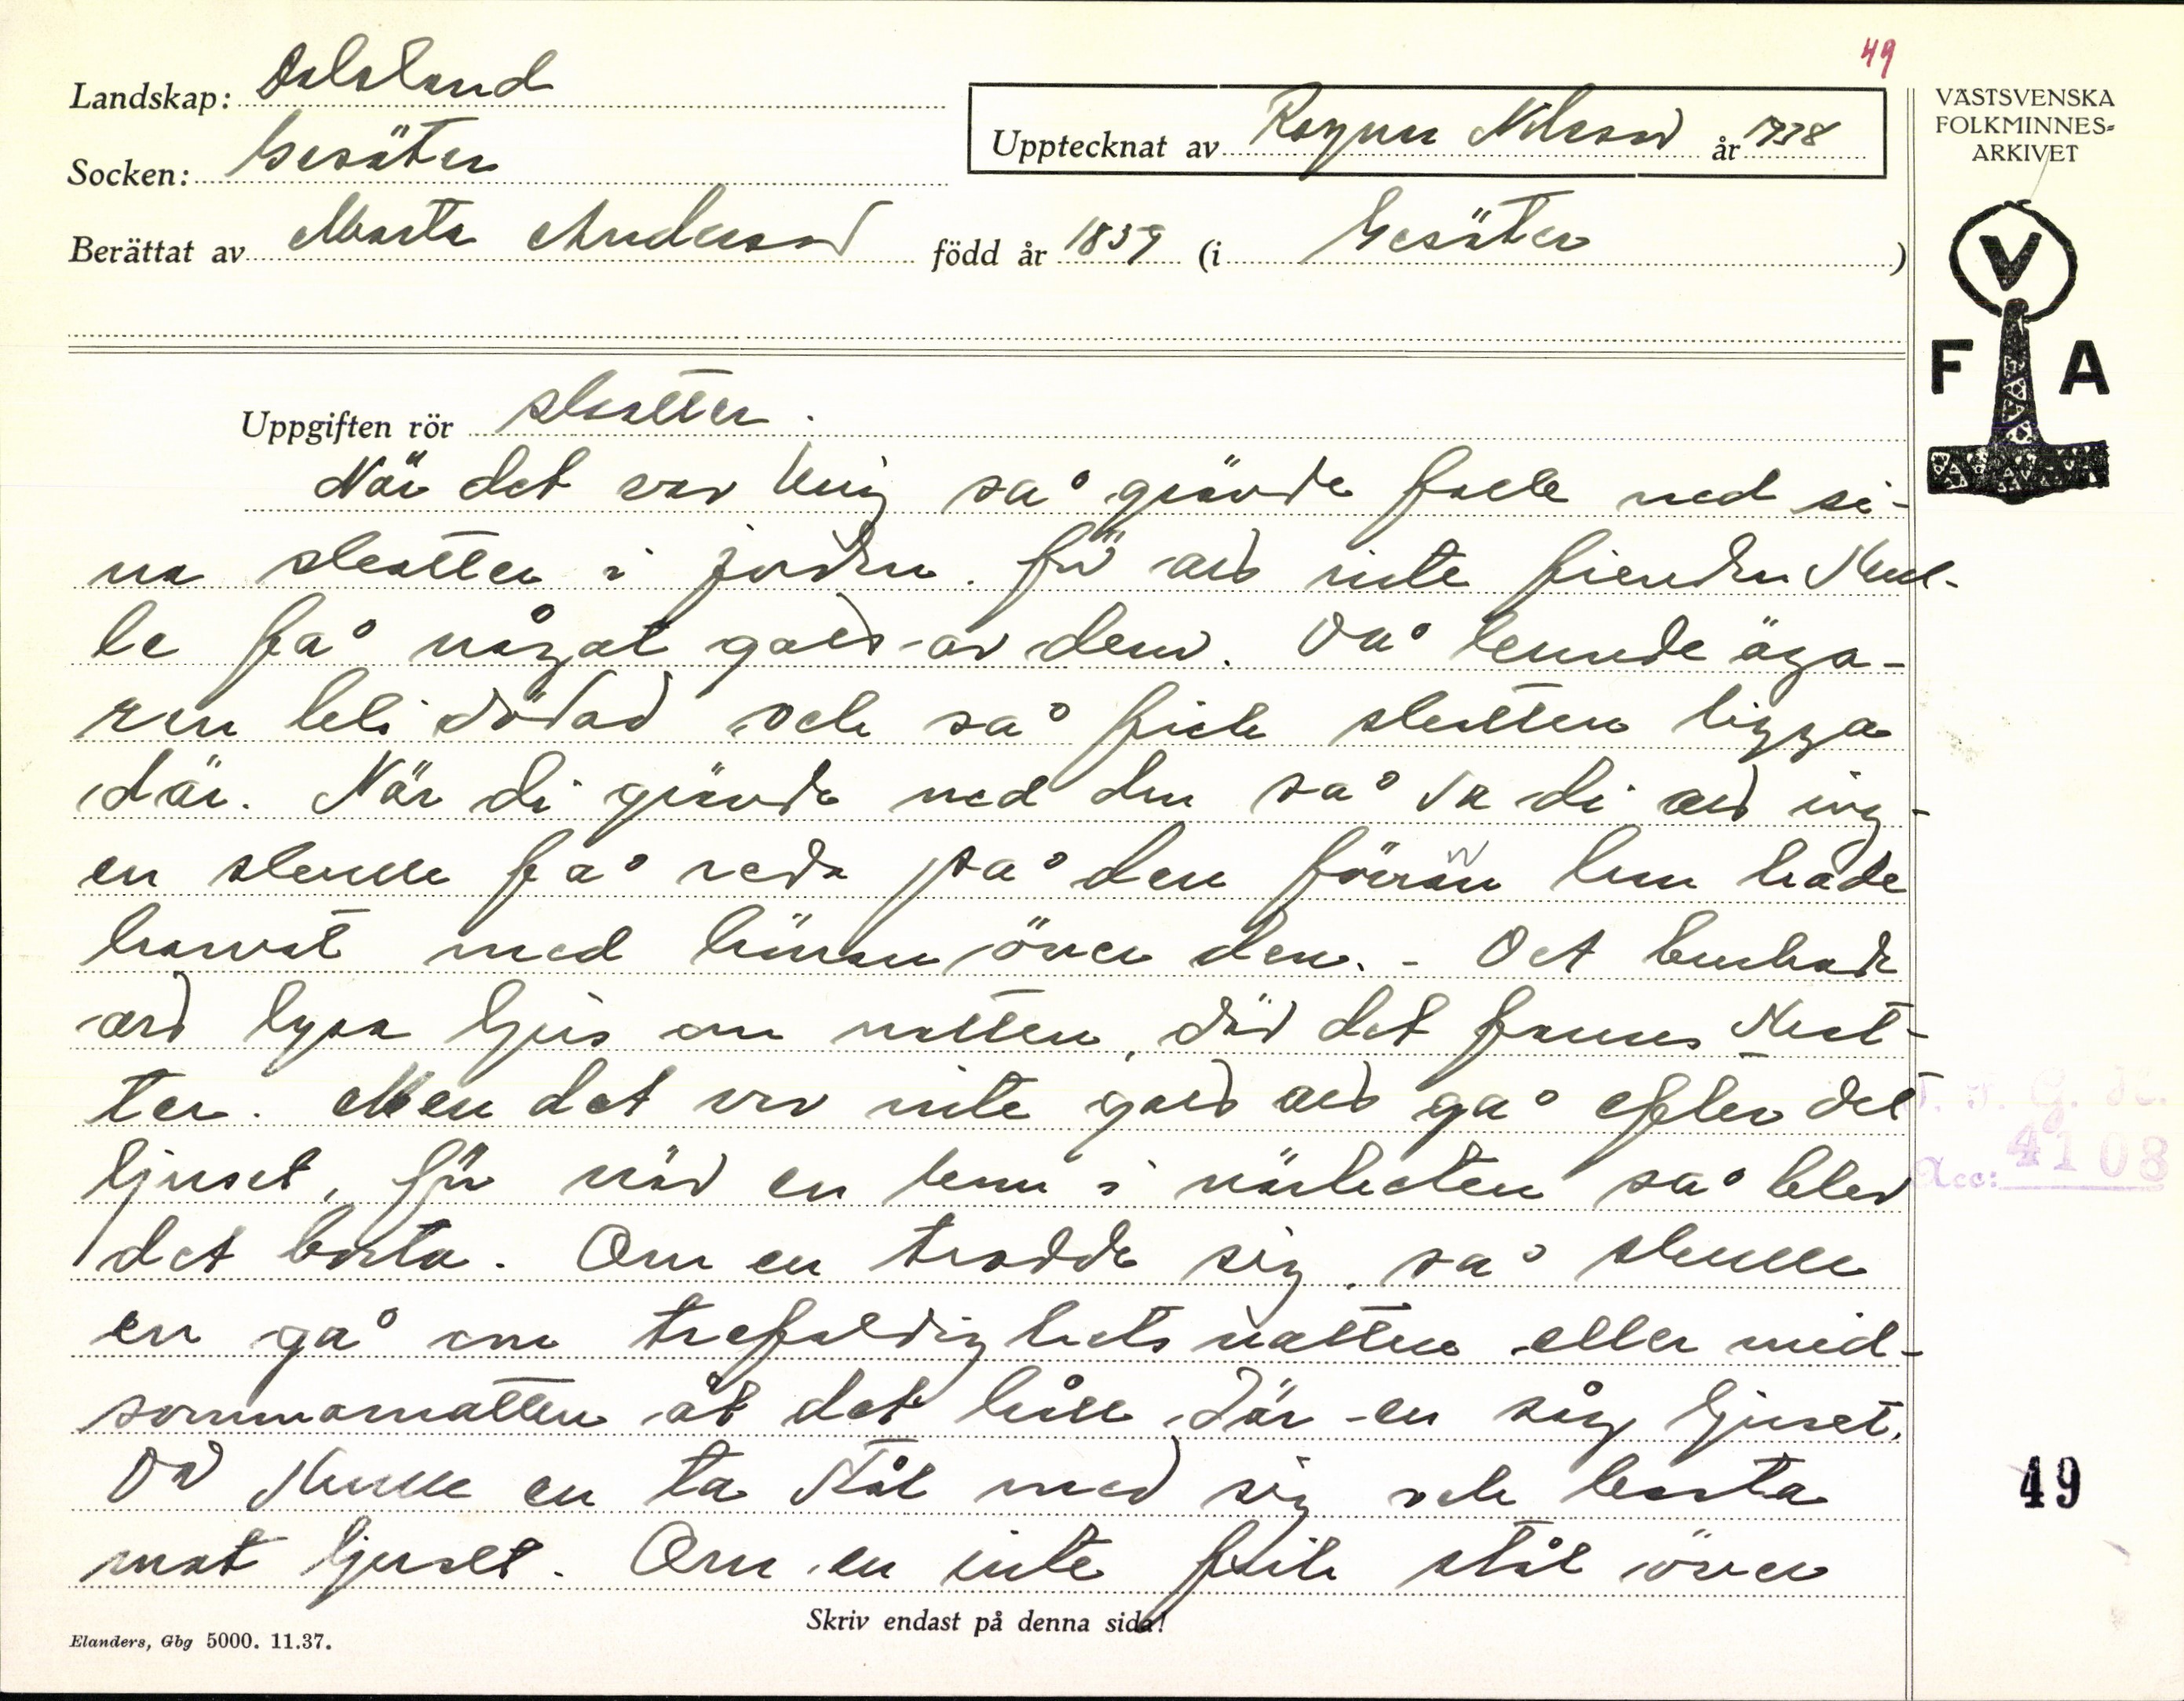 49
Landskap: Dalsland
Socken: Gesäter
Upptecknat av Ragnar Nilsson år 1938
Berättat av Marta Andersson född år 1839 (i Gesäter)
VÄSTSVENSKA
FOLKMINNES-
ARKIVET
V
F A
Uppgiften rör skatter.
När det var krig så grävde folk ned si-
na skatter i jorden. för att inte fienden skul-
le få något gals av dem. Då kunde äga-
ren bli dödad och så fick skatten ligga
där. När di grävde ned den så sa di att ing-
en skulle få reda på den förrän hin hade
harvat med hinan över den. - Det brukade
att lysa ljus om natten, där det fanns skat-
ter. Men det var inte gott att gå efter det
ljuset, för när en kom i närheten så blev
det borta. Om en trodde sig, så skulle
en gå om trefaldighetsnatten eller mid-
sommarnatten åt det håll där en såg ljuset.
Då skulle en ta stål med sig och kasta
mot ljuset. Om en inte fick stål över
T. F. G. H.
Acc: 4108
49
Skriv endast på denna sida!
Elanders, Gbg 5000. 11.37.